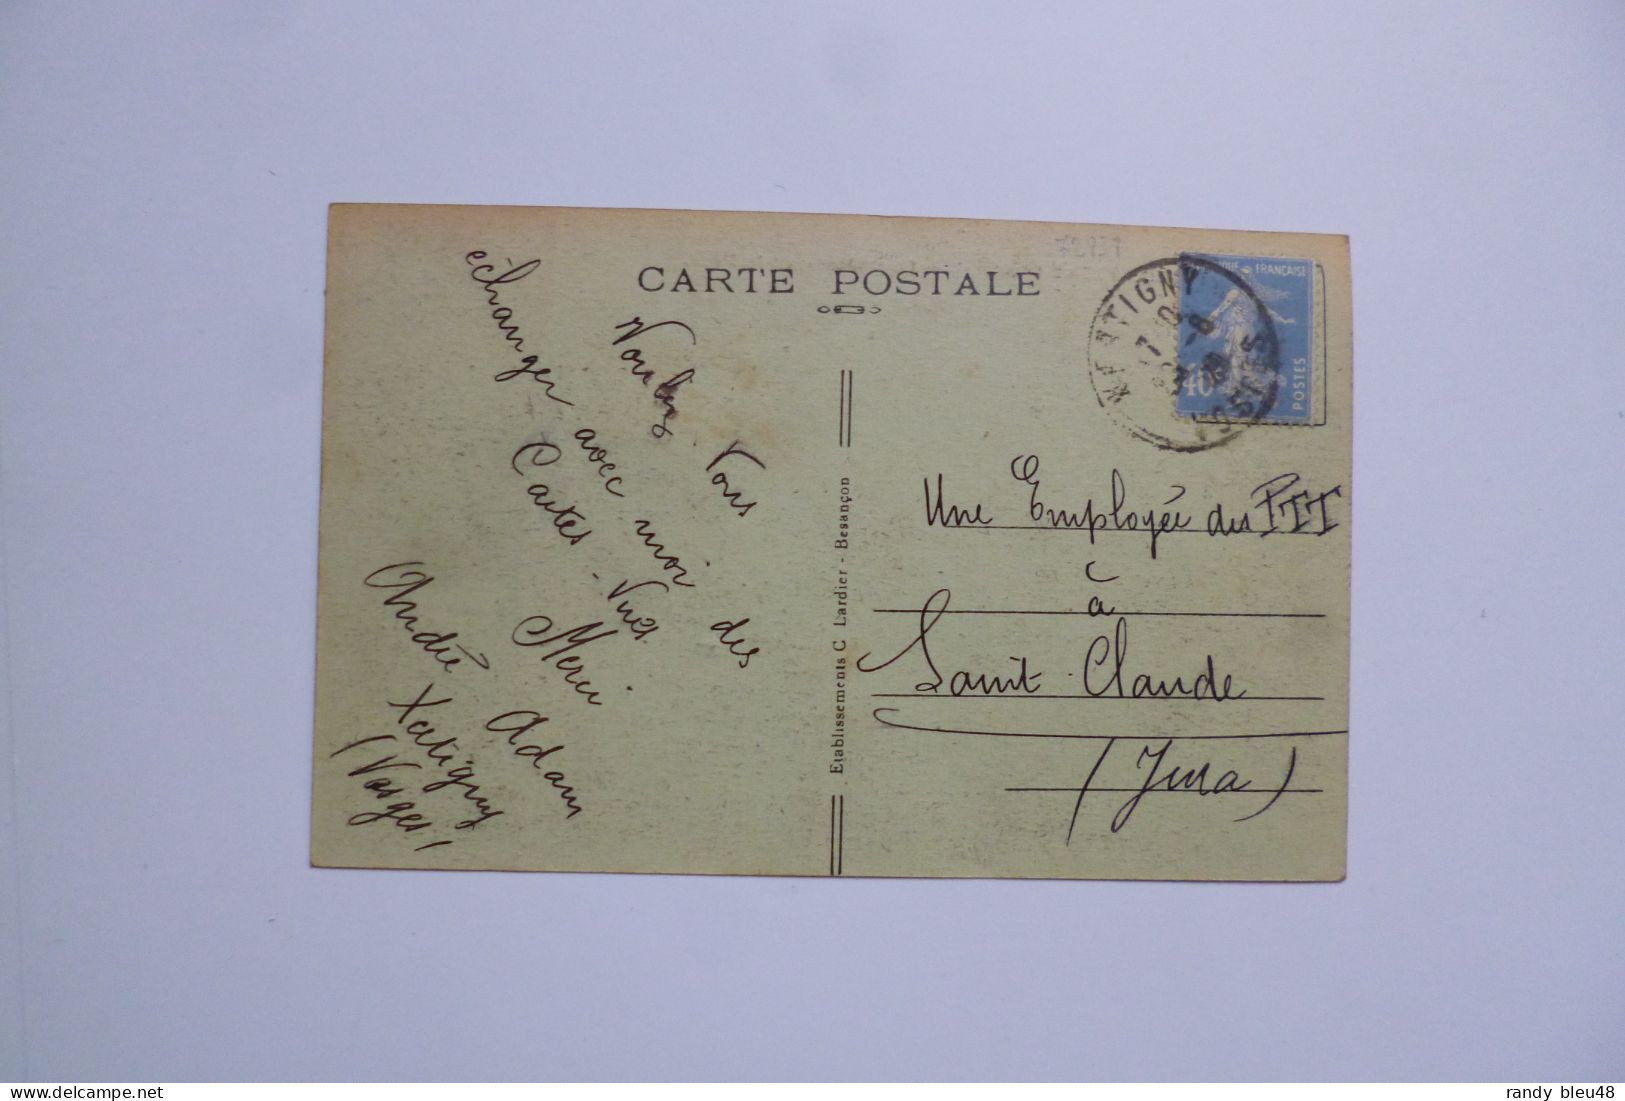 72931
CARTE POSTALE
XERTIGNY
VOSGES
FRANÇAISE
40
POSTES
Voulez Vous
échanger avec moi des
Cartes-Vues.
Merci
André Adam
Xertigny
(Vosges)
Etablissements C Lardier - Besançon
Une Employée des PTT
à
Saint Claude
(Jura)
www.delcampe.net
randy bleu48